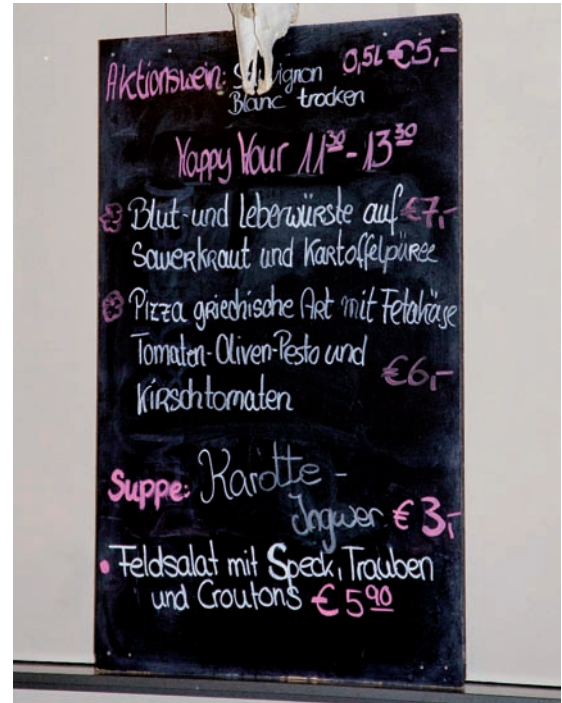 Aktionswein: Sauvignon 0,5L €5,-
Blanc trocken
Happy Hour 11³⁰-13³⁰
Blut- und Leberwürste auf €7,-
Sauerkraut und Kartoffelpüree
Pizza griechische Art mit Fetakäse
Tomaten-Oliven-Pesto und
€6,-
Kirschtomaten
Suppe: Karotte-
Ingwer €3,-
• Feldsalat mit Speck, Trauben
und Croutons €5⁹⁰